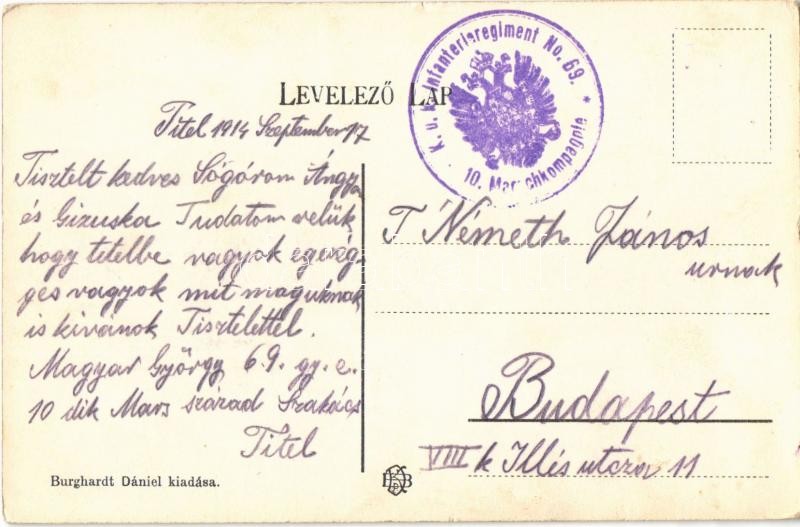 LEVELEZŐ LAP
K. u. k. Infanterieregiment No. 69.
10. Marschkompagnie
Titel 1914 Szeptember 17
Tisztelt kedves Sógórom Ángyó
és Gizuska Tudatom velük
hogy titelbe vagyok egevég
ges vagyok mit maguknak
is kivánok Tisztelettel.
Magyar György 69. gy. e.
10 dik Mars század Szakács
Titel
T Németh János
urnak
Budapest
VIII k Illés utcza 11
Burghardt Dániel kiadása.